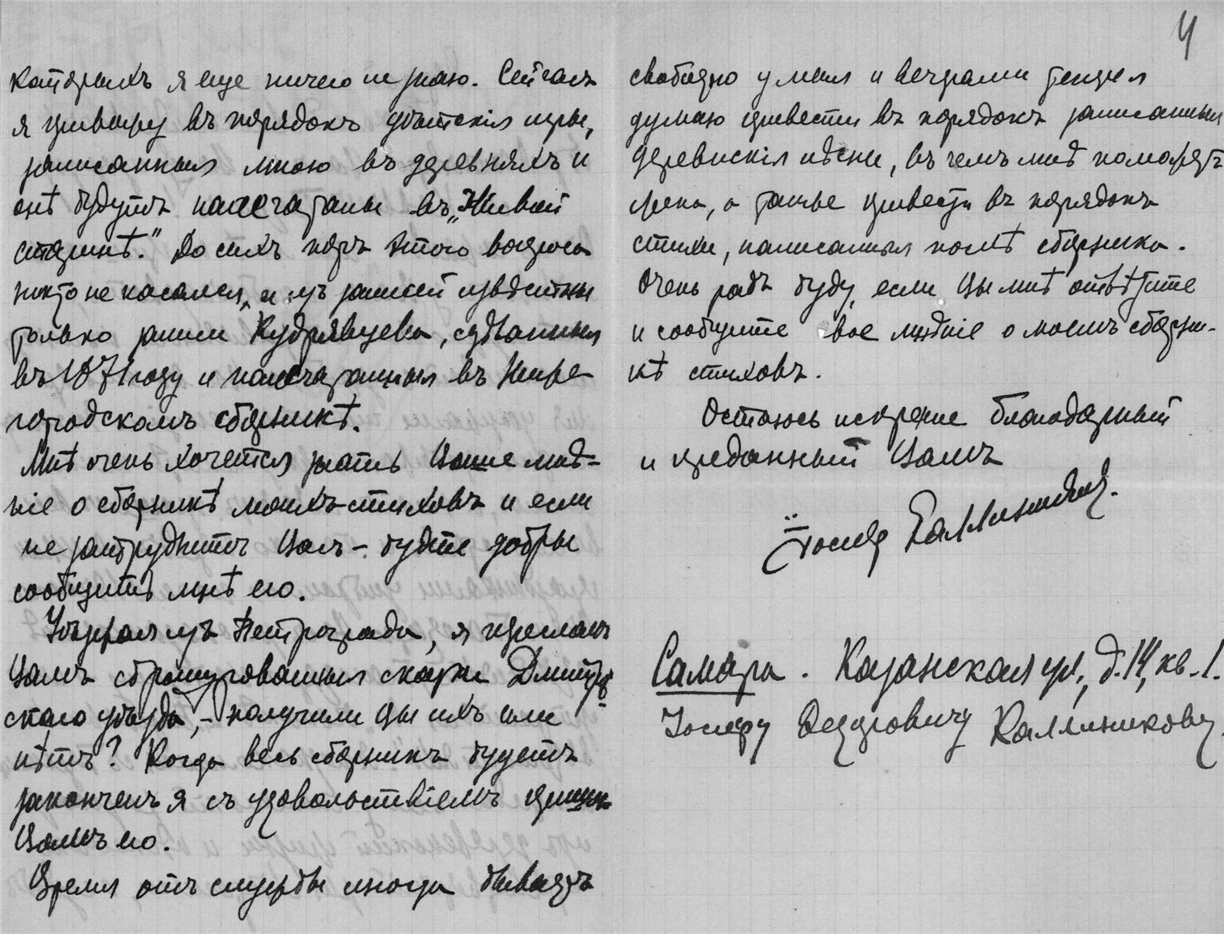 которыхъ я еще ничего не знаю. Сейчасъ
я привожу въ порядокъ дѣтскія игры,
записанныя мною въ деревняхъ и
онѣ будутъ напечатаны въ „Живой
старинѣ." До сихъ поръ этого вопроса
никто не касался, и изъ записей извѣстны
только записи Кудрявцева, сдѣланныя
въ 1871 году и напечатанныя въ Ниже-
городскомъ сборникѣ.
Мнѣ очень хочется знать Ваше мнѣ-
ніе о сборникѣ моихъ стиховъ и если
не затруднитъ Васъ – будте добры
сообщить мнѣ его.
Уѣзжая изъ Петрограда, я послалъ
Вамъ сброшурованныя сказки Дмитров-
скаго уѣзда, – получили Вы ихъ или
нѣтъ? Когда весь сборникъ будетъ
законченъ я съ удовольствіемъ пришлю
Вамъ его.
Время отъ службы иногда бываетъ
4
свободно у меня и вечерами теперь
думаю привести въ порядокъ записанныя
деревнскія пѣсни, въ чемъ мнѣ поможетъ
жена, а также привести въ порядокъ
стихи, написанныя послѣ сборника.
Очень радъ буду, если Вы мнѣ отвѣтите
и сообщите свое мнѣніе о моемъ сборни-
кѣ стиховъ.
Остаюсь искренне благодарный
и преданный Вамъ
Іосифъ Каллиниковъ.
Самара. Казанская ул., д. 14, кв. 1.
Іосифу Федоровичу Каллиникову.